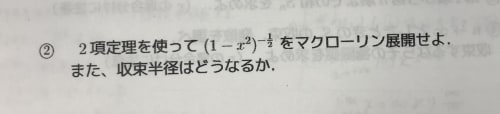 ② 2項定理を使って $(1-x^2)^{-\frac{1}{2}}$ をマクローリン展開せよ.
また、収束半径はどうなるか.